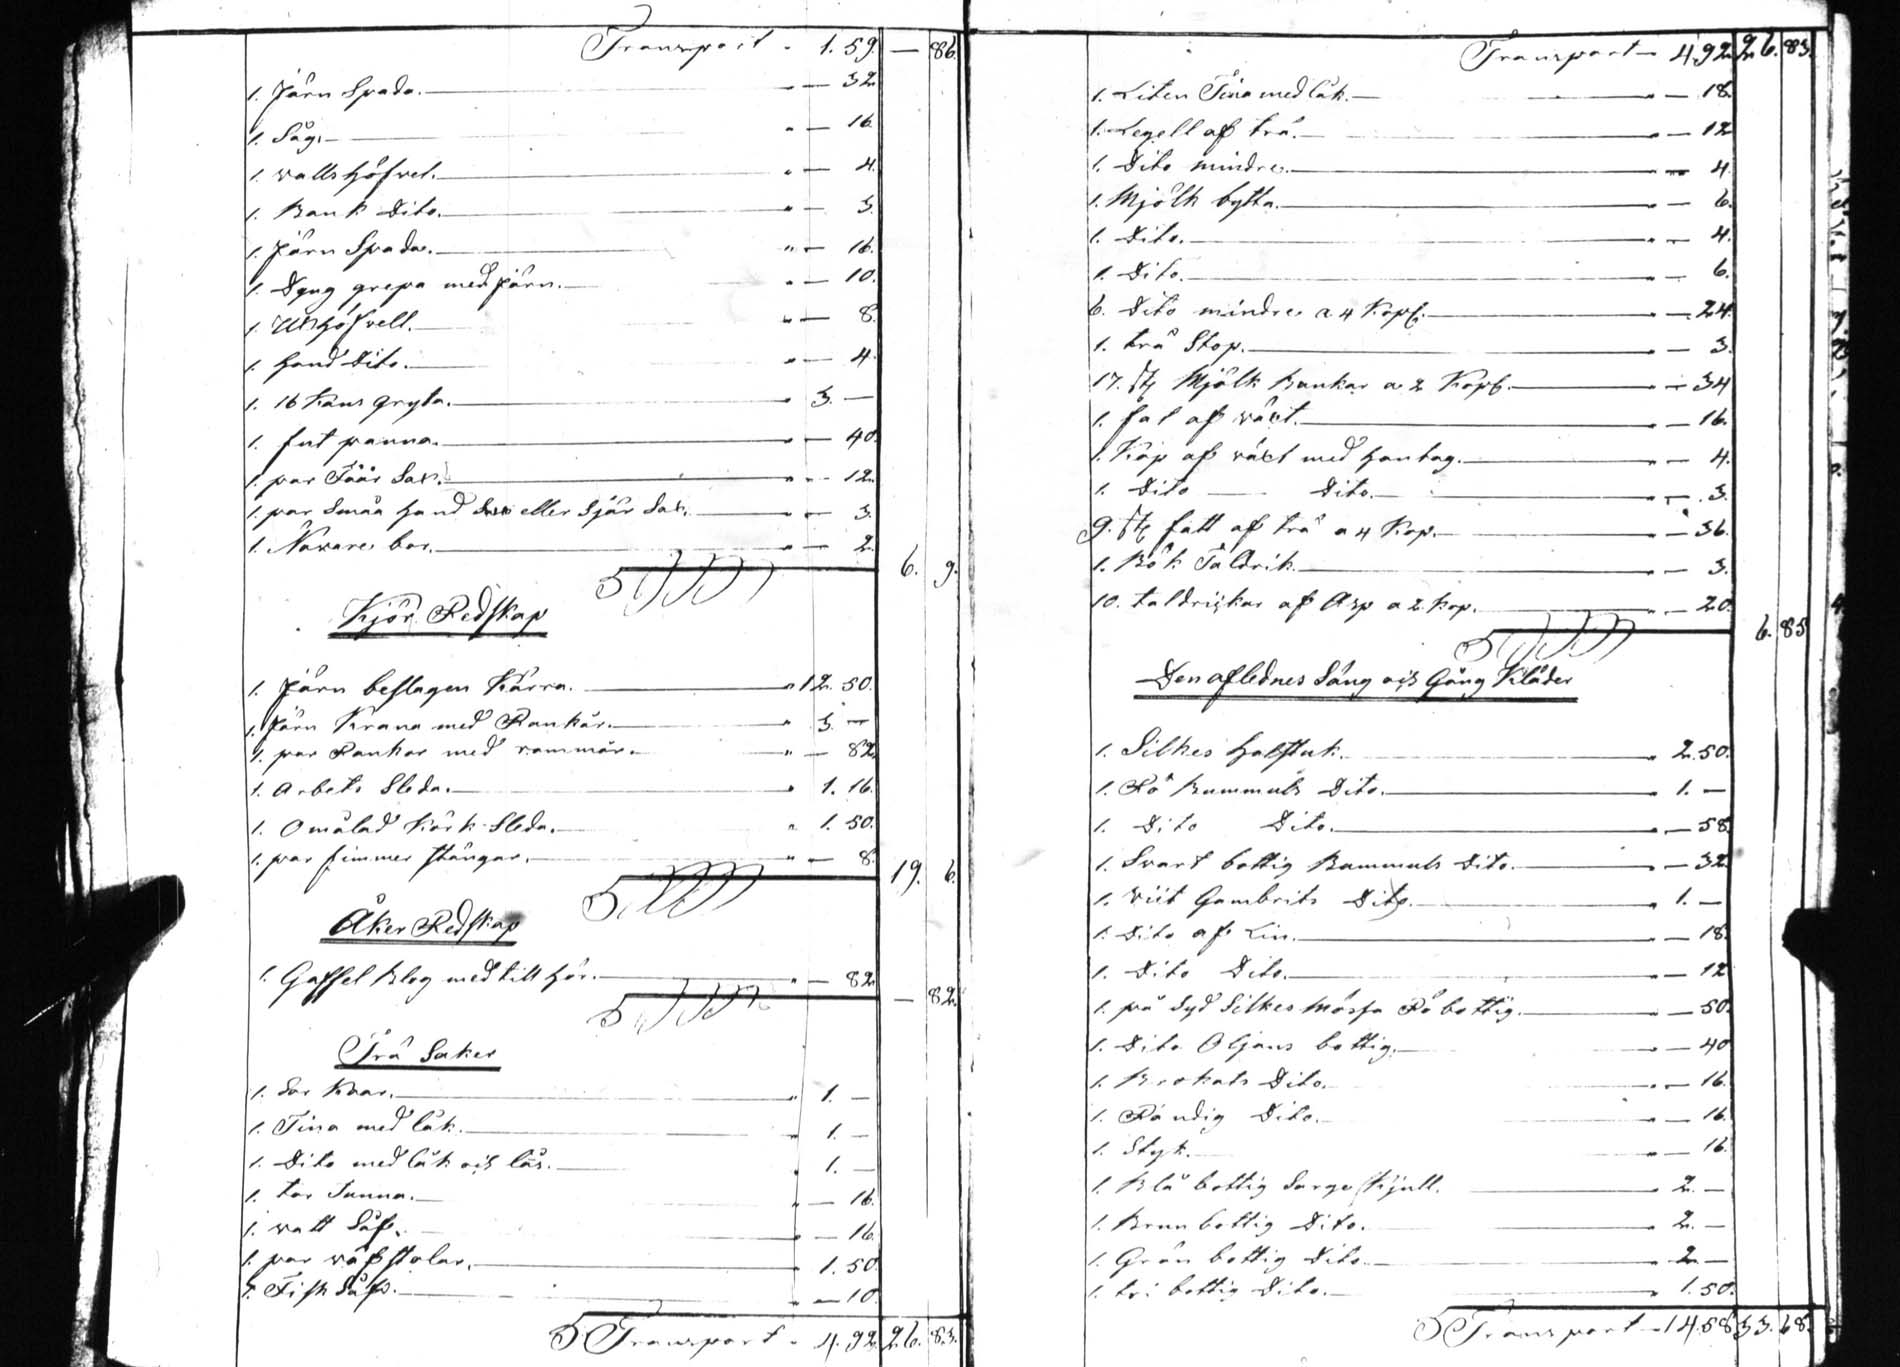 Transport - 1.59. — 86.
1. Järn Spada. " — 32
1. Såg. " — 16.
1. valls Höfvel. " — 4.
1. Bank Dito. " — 3.
1. Järn Spada. " — 16.
1. Dyng grepa med Järn. " — 10.
1. Höfvell. " — 8.
1. Hand Dito. " — 4.
1. 16 Kans gryta. " 3. —
1. fut panna. " — 40.
1. par Fäår Sax. " — 12.
1. par Småa Hand Sax eller Sjär Sax. " — 3.
1. Navare bor. " — 2.
6. 9.
Kjör Redskap
1. Järn beslagen Kärra. " 12. 50.
1. Järn Krana med Rankar. " 3. —
1. par Rankar med rammar. " — 82
1. Arbets Sleda. " 1. 16.
1. Omålad Körk Sleda. " 1. 50.
1. par fimmer stänger. " — 8.
19. 6.
Åker Redskap
1. Gaffel Blog med till Hör. " — 82
— 82.
Trä Saker
1. Kvar. " 1. —
1. Tina med låk. " 1. —
1. Dito med låk och lås. " 1. —
1. tor Tunna. " — 16.
1. vatt Såf. " — 16.
1. par väfstolar. " 1. 50
1. Fisk Såf. " — 10.
Transport - 4.92 26. 83.
Transport - 4.92 26. 83.
1. Liten Tina med låk. " — 18.
1. Legell af trä. " — 12
1. Dito mindre. " — 4.
1. Mjölk bytta. " — 6.
1. Dito. " — 4.
1. Dito. " — 6.
6. Dito mindre a 4 Kopf. " — 24.
1. trä Stop. " — 3.
17. st Mjölk Bunkar a 2 Kopf. " — 34
1. fat af växt. " — 16.
1. Kåp af växt med Hantag. " — 4.
1. Dito — Dito. " — 3.
9. st fatt af trä a 4 Kop. " — 36.
1. Bök Taldrik. " — 3.
10. taldrikar af Asp a 2 Kop. " — 20.
6. 85
Den aflednes Säng och Gång Kläder
1. Silkes Halstuk. " 2. 50.
1. Rö Bummuls Dito. " 1. —
1. Dito Dito. " — 58.
1. Svart bottig Bummuls Dito. " — 32
1. viit Gambrits Dito. " 1. —
1. Dito af Lin. " — 18.
1. Dito Dito. " — 12
1. på Syd Silkes Mössa Rö bottig. " — 50.
1. Dito Oljans bottig. " — 40
1. Brokats Dito. " — 16.
1. Randig Dito. " — 16.
1. Styk. " — 16.
1. Blå bottig Sarge Kjull. " 2. —
1. Brun bottig Dito. " 2. —
1. Grön bottig Dito. " 2 —
1. tri bottig Dito. " 1. 50.
Transport - 14.58 33. 68.